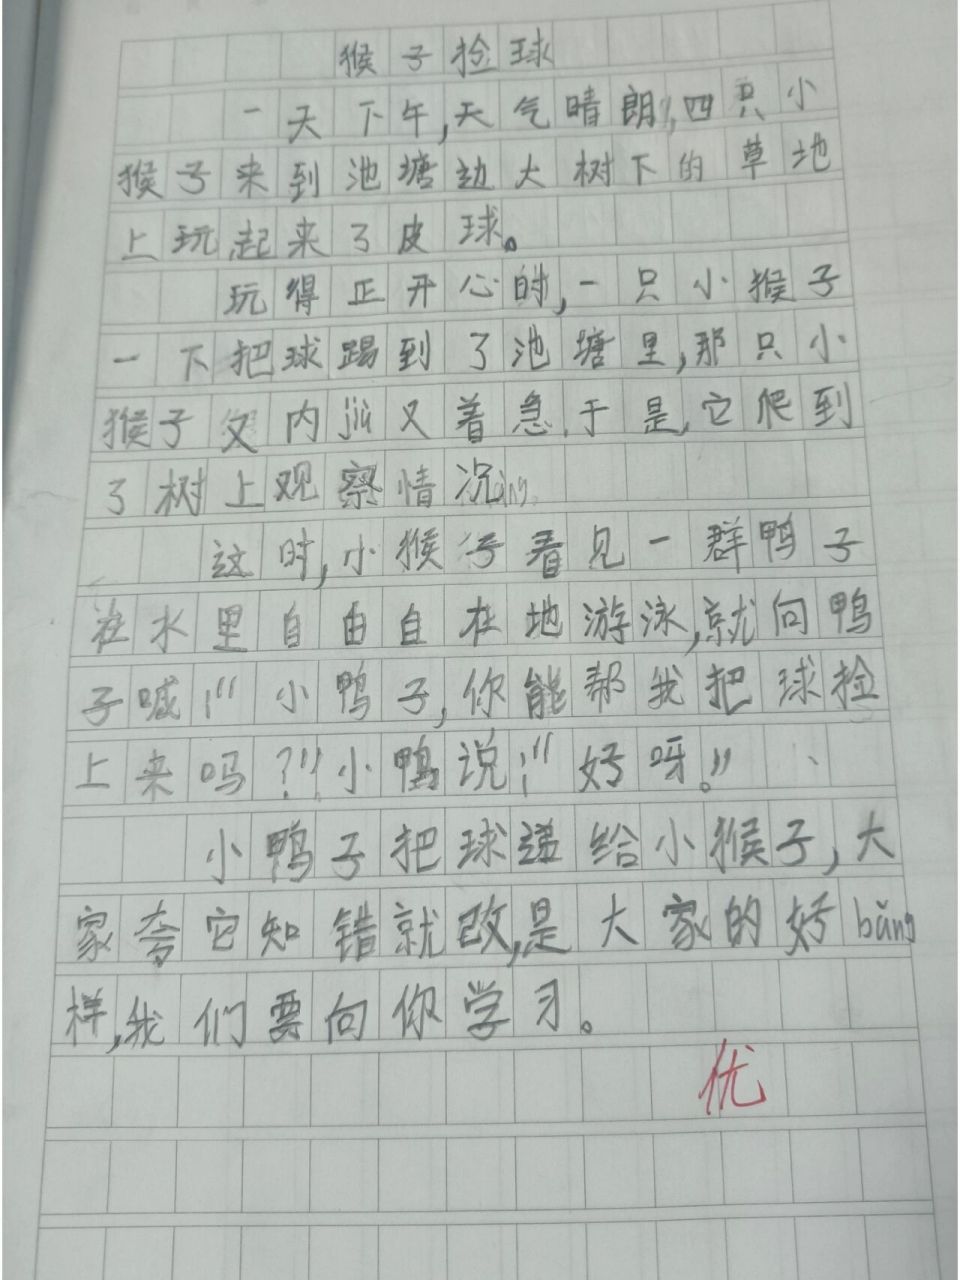 猴子捡球
一天下午,天气晴朗,四只小
猴子来到池塘边大树下的草地
上玩起来了皮球。
玩得正开心的,一只小猴子
一下把球踢到了池塘里,那只小
猴子又内jiù又着急,于是,它爬到
了树上观察情况
这时,小猴子看见一群鸭子
在水里自由自在地游泳,就向鸭
子喊:“小鸭子,你能帮我把球捡
上来吗?”小鸭说:“好呀。”
小鸭子把球递给小猴子,大
家夸它知错就改,是大家的好bǎng
样,我们要向你学习。
优